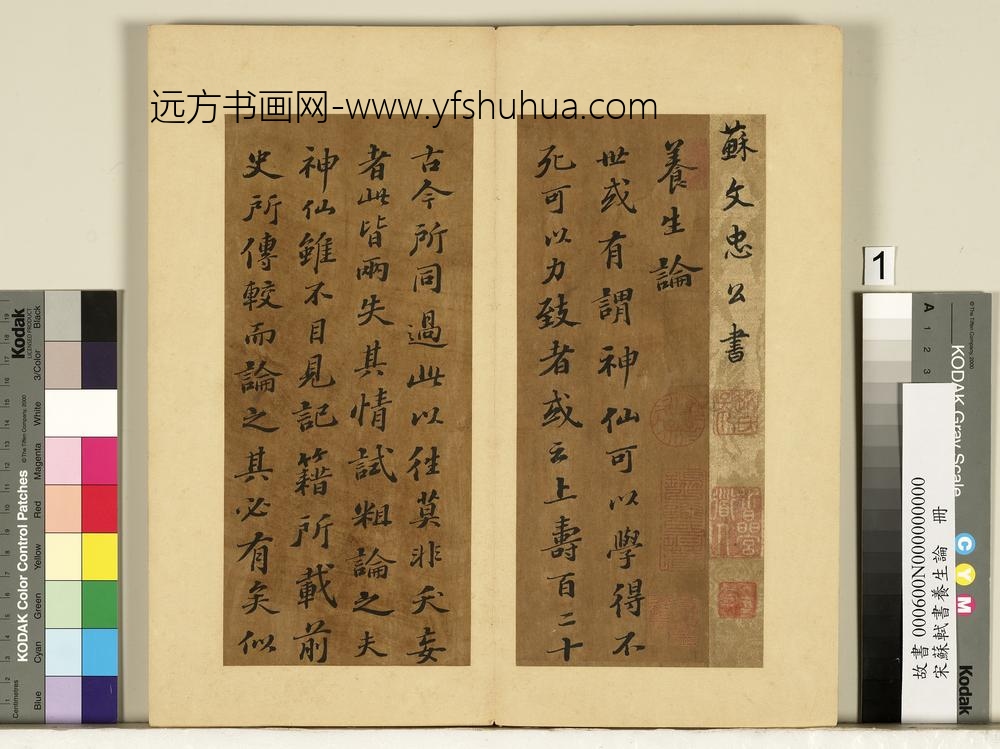 远方书画网-www.yfshuhua.com
蘇文忠公書
養生論
世或有謂神仙可以學得不
死可以力致者或云上壽百二十
古今所同過此以往莫非夭妄
者此皆兩失其情試粗論之夫
神仙雖不目見記籍所載前
史所傳較而論之其必有矣似
Kodak
LICENSED PRODUCT
KODAK Color Control Patches
© The Tiffen Company, 2000
Centimetres
Blue
Cyan
Green
Yellow
Red
Magenta
White
3/Color
Black
1
A 1 2 3
© The Tiffen Company, 2000
KODAK Gray Scale
C Y M
Kodak
故書 000600N000000000
宋蘇軾書養生論 冊